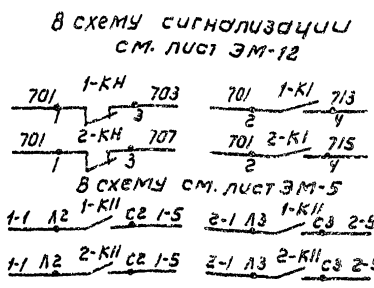 В схему сигнализации
см. лист ЭМ-12
701 1-КН 703
1 3
701 2-КН 707
1 3
701 1-К1 713
2 4
701 2-К1 715
2 4
В схему см. лист ЭМ-5
1-1 Л2 1-К11 С2 1-5
2-1 Л3 1-К11 С3 2-5
1-1 Л2 2-К11 С2 1-5
2-1 Л3 2-К11 С3 2-5